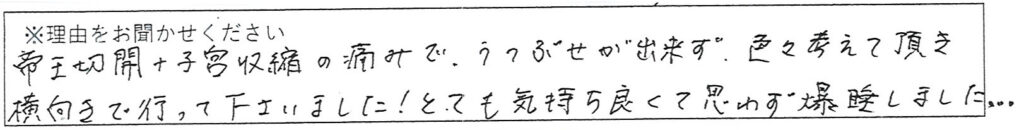 ※理由をお聞かせください
帝王切開+子宮収縮の痛みで、うつぶせが出来ず、色々考えて頂き
横向きで行って下さいました!とても気持ち良くて思わず爆睡しました...